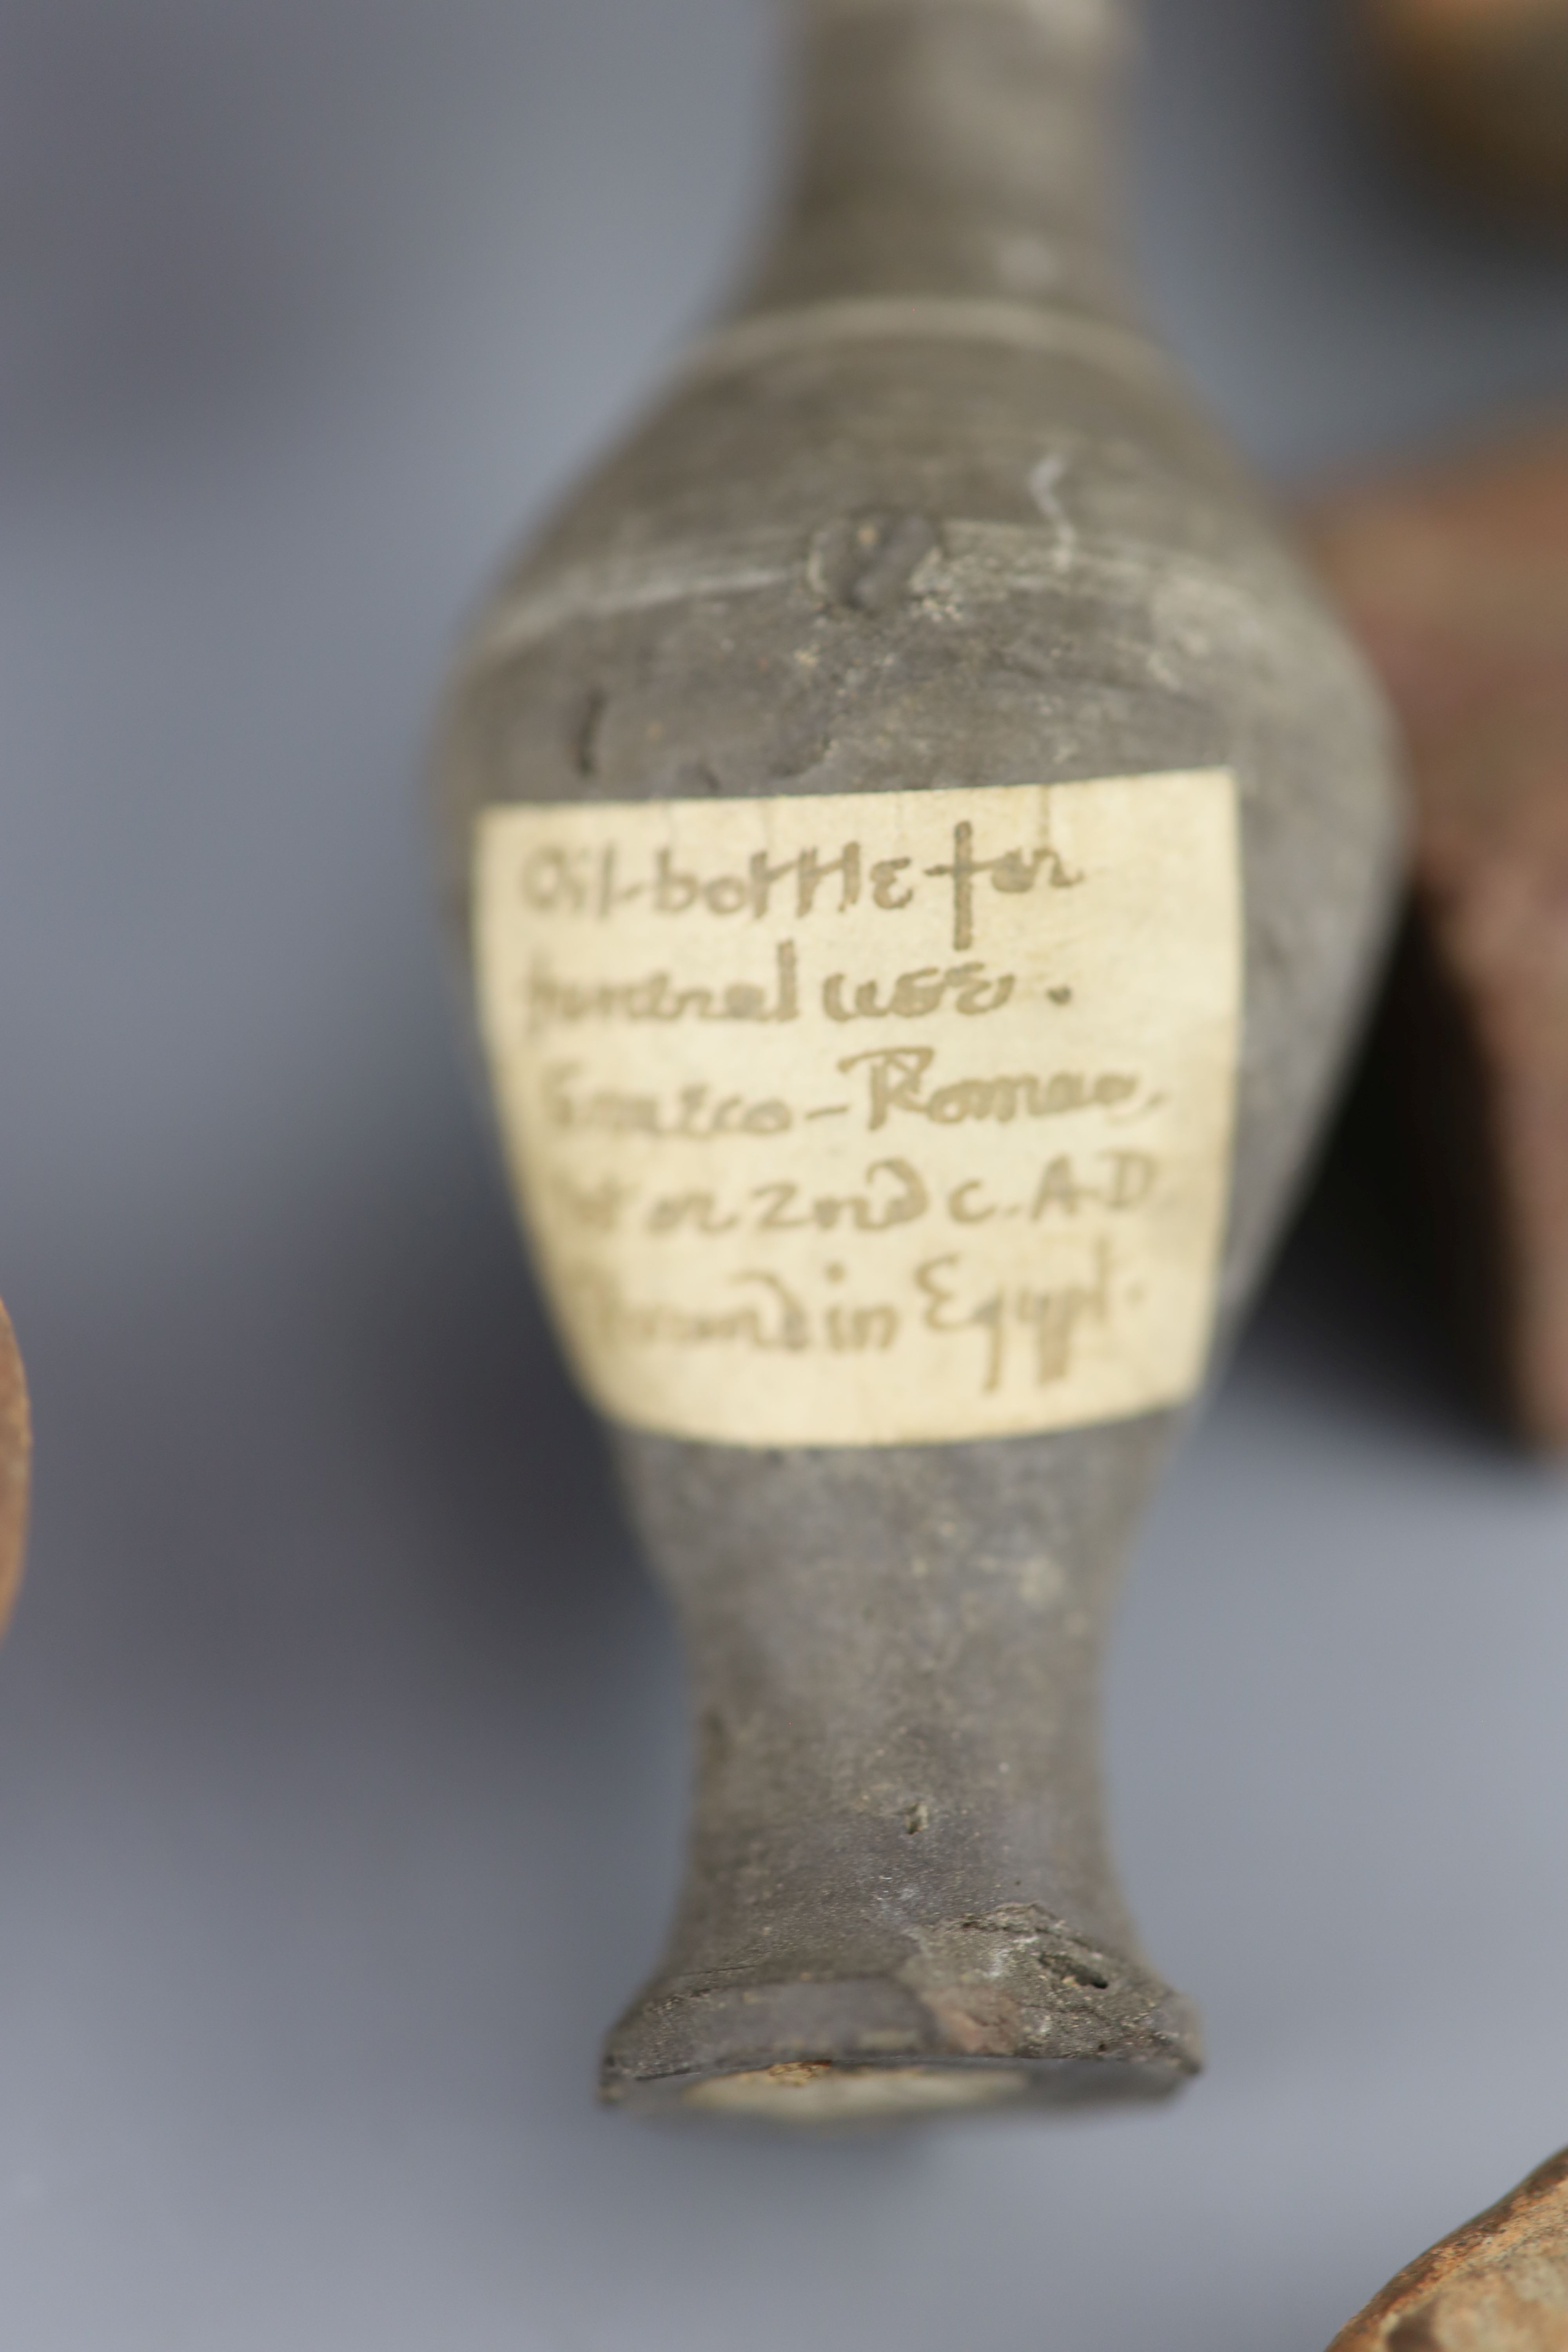 Oil-bottle for
funeral use.
Graeco-Roman,
1st or 2nd c. A.D
Found in Egypt.